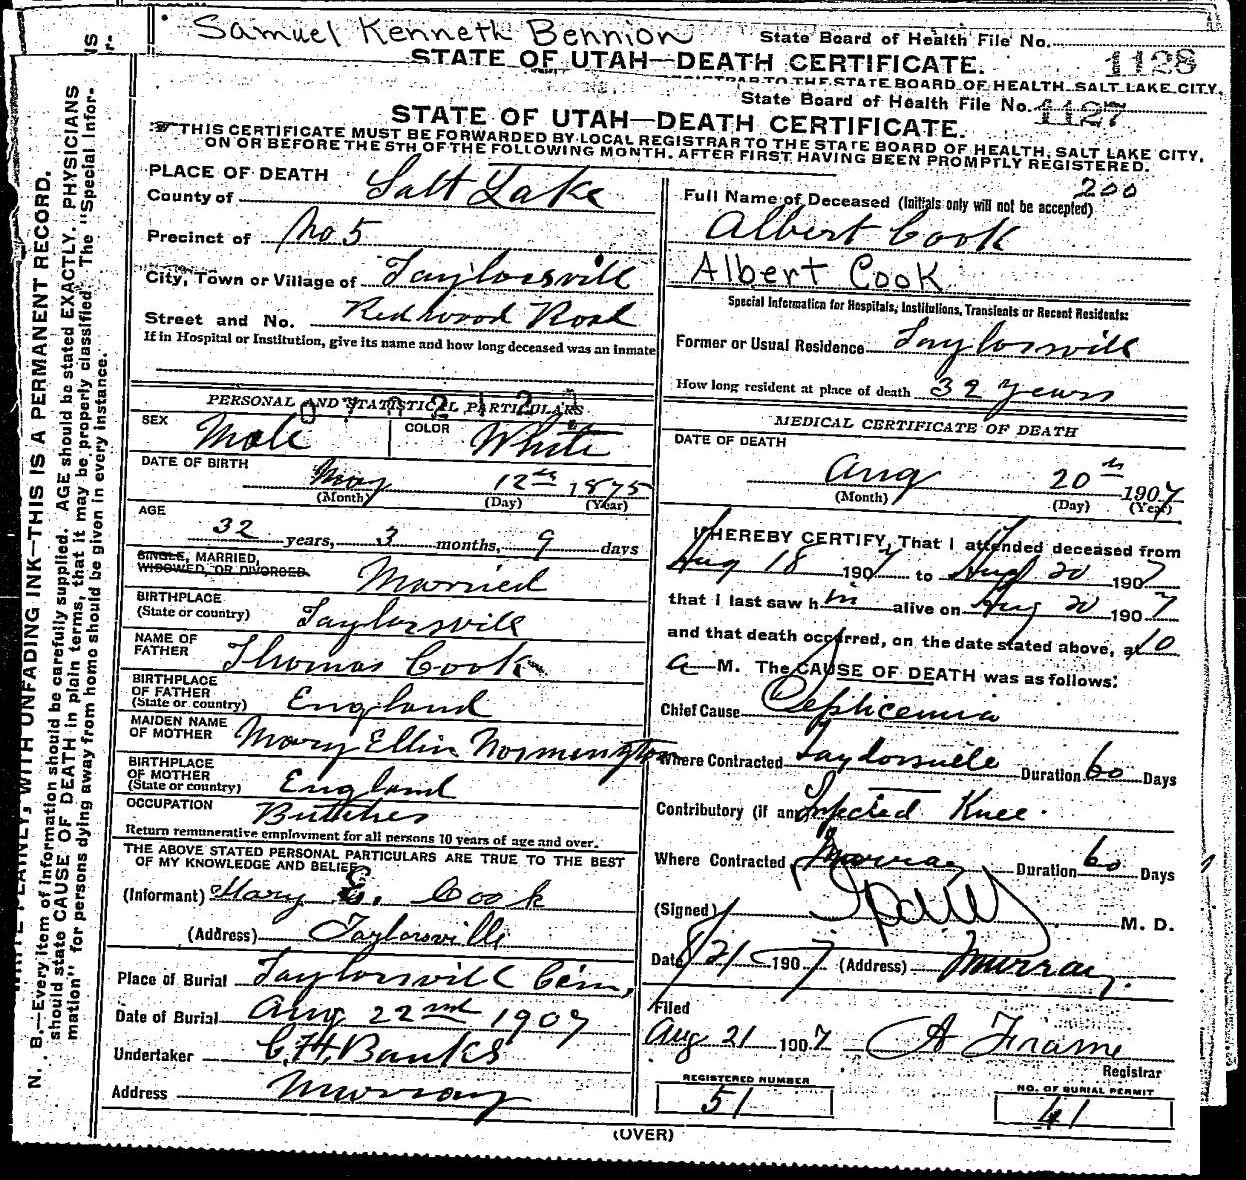 Samuel Kenneth Bennion
State Board of Health File No. 1128
STATE OF UTAH—DEATH CERTIFICATE.
REGISTRAR TO THE STATE BOARD OF HEALTH, SALT LAKE CITY,
State Board of Health File No. 1127
STATE OF UTAH—DEATH CERTIFICATE.
THIS CERTIFICATE MUST BE FORWARDED BY LOCAL REGISTRAR TO THE STATE BOARD OF HEALTH, SALT LAKE CITY,
ON OR BEFORE THE 5TH OF THE FOLLOWING MONTH, AFTER FIRST HAVING BEEN PROMPTLY REGISTERED.
N. B.—Every item of information should be carefully supplied. AGE should be stated EXACTLY. PHYSICIANS
should state CAUSE OF DEATH in plain terms, that it may be properly classified. The "Special Infor-
mation" for persons dying away from home should be given in every instance.
WRITE PLAINLY, WITH UNFADING INK—THIS IS A PERMANENT RECORD.
PLACE OF DEATH
County of Salt Lake
Precinct of No 5
City, Town or Village of Taylorsvill
Street and No. Redwood Road
If in Hospital or Institution, give its name and how long deceased was an inmate
PERSONAL AND STATISTICAL PARTICULARS
SEX Male
COLOR White
DATE OF BIRTH May 12th 1875
(Month) (Day) (Year)
AGE
32 years, 3 months, 9 days
SINGLE, MARRIED,
WIDOWED, OR DIVORCED. Married
BIRTHPLACE
(State or country) Taylorsvill
NAME OF
FATHER Thomas Cook
BIRTHPLACE
OF FATHER
(State or country) England
MAIDEN NAME
OF MOTHER Mary Ellin Normington
BIRTHPLACE
OF MOTHER
(State or country) England
OCCUPATION Butcher
Return remunerative employment for all persons 10 years of age and over.
THE ABOVE STATED PERSONAL PARTICULARS ARE TRUE TO THE BEST
OF MY KNOWLEDGE AND BELIEF
(Informant) Mary E. Cook
(Address) Taylorsville
Place of Burial Taylorsvill Cem,
Date of Burial Aug 22nd 1907
Undertaker C. H. Banks
Address Murray
200
Full Name of Deceased (Initials only will not be accepted)
Albert Cook
Albert Cook
Special Information for Hospitals, Institutions, Transients or Recent Residents:
Former or Usual Residence Taylorsvill
How long resident at place of death 32 years
MEDICAL CERTIFICATE OF DEATH
DATE OF DEATH
Aug 20th 1907
(Month) (Day) (Year)
I HEREBY CERTIFY, That I attended deceased from
Aug 18 1907 to Aug 20 1907
that I last saw him alive on Aug 20 1907
and that death occurred, on the date stated above, at 10
a M. The CAUSE OF DEATH was as follows:
Chief Cause Septicemia
Where Contracted Taylorsville Duration 60 Days
Contributory (if any) Infected Knee.
Where Contracted Murray Duration 60 Days
(Signed) M. D.
Date 8/21 1907 (Address) Murray.
Filed
Aug 21 1907 A Frame
Registrar
REGISTERED NUMBER
51
NO. OF BURIAL PERMIT
41
(OVER)